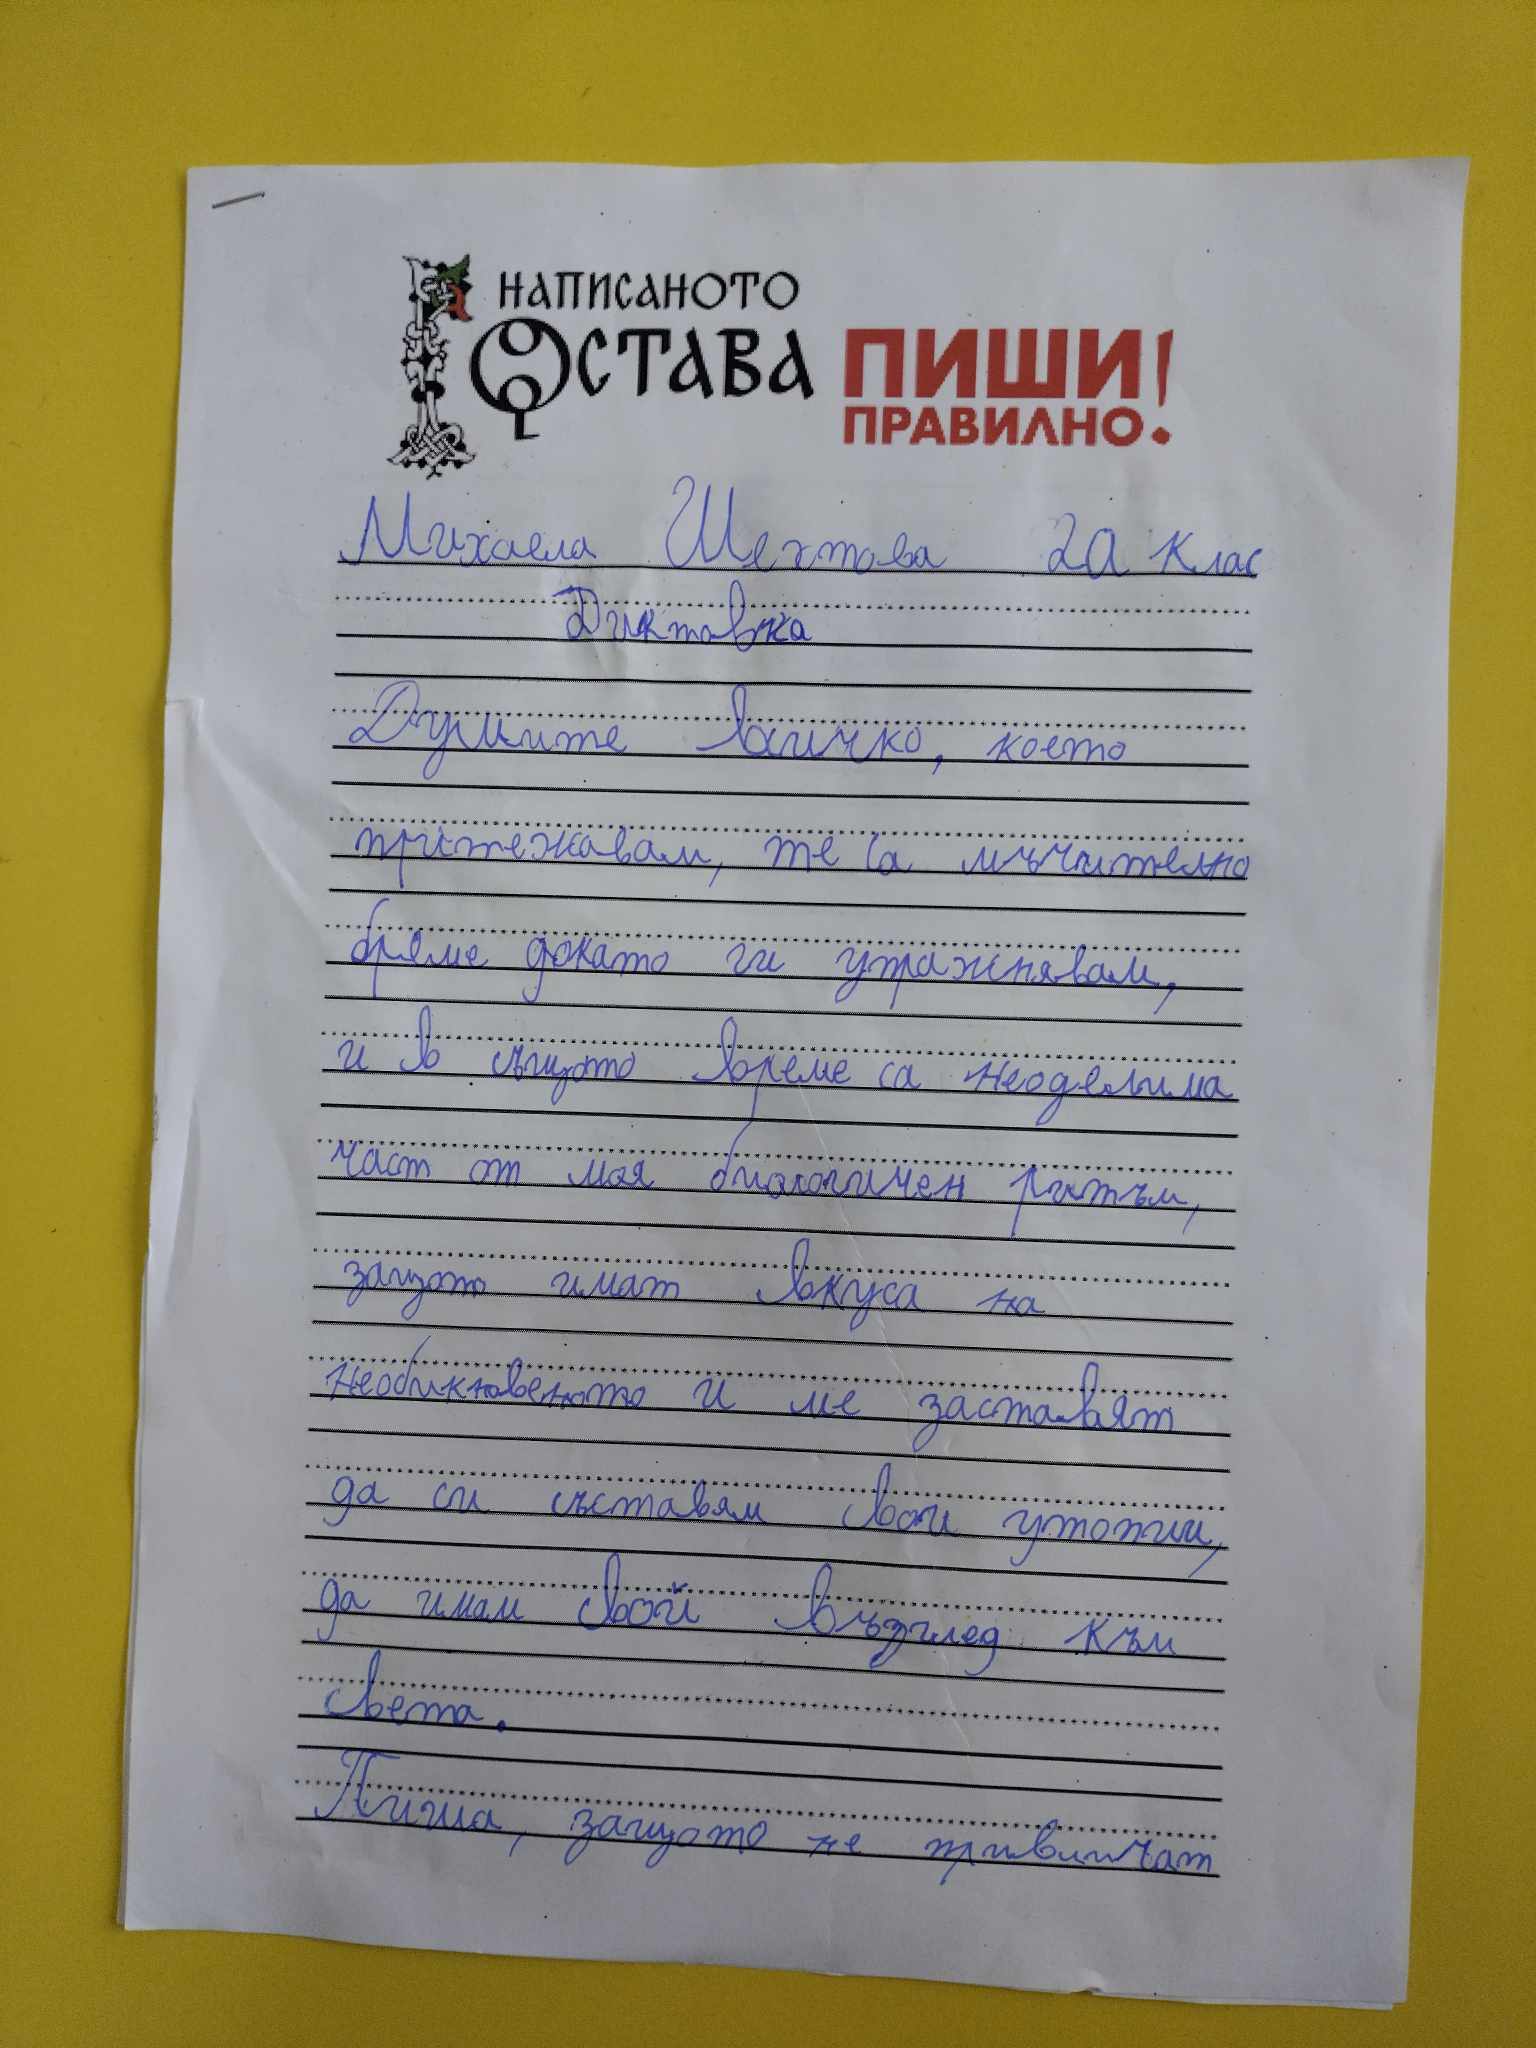 НАПИСАНОТО
ОСТАВА
ПИШИ!
ПРАВИЛНО
Михаела Шехтова 2а клас
Диктовка
Думите всичко, което
притежавам, те са мъчително
бреме докато ги упражнявам,
и в същото време са неоделима
част от моя биологичен ритъм,
защото имат вкуса на
необикновеното и ме заставят
да си съставям свои утопии,
да имам свой възглед към
света.
Пиша, защото не привличат